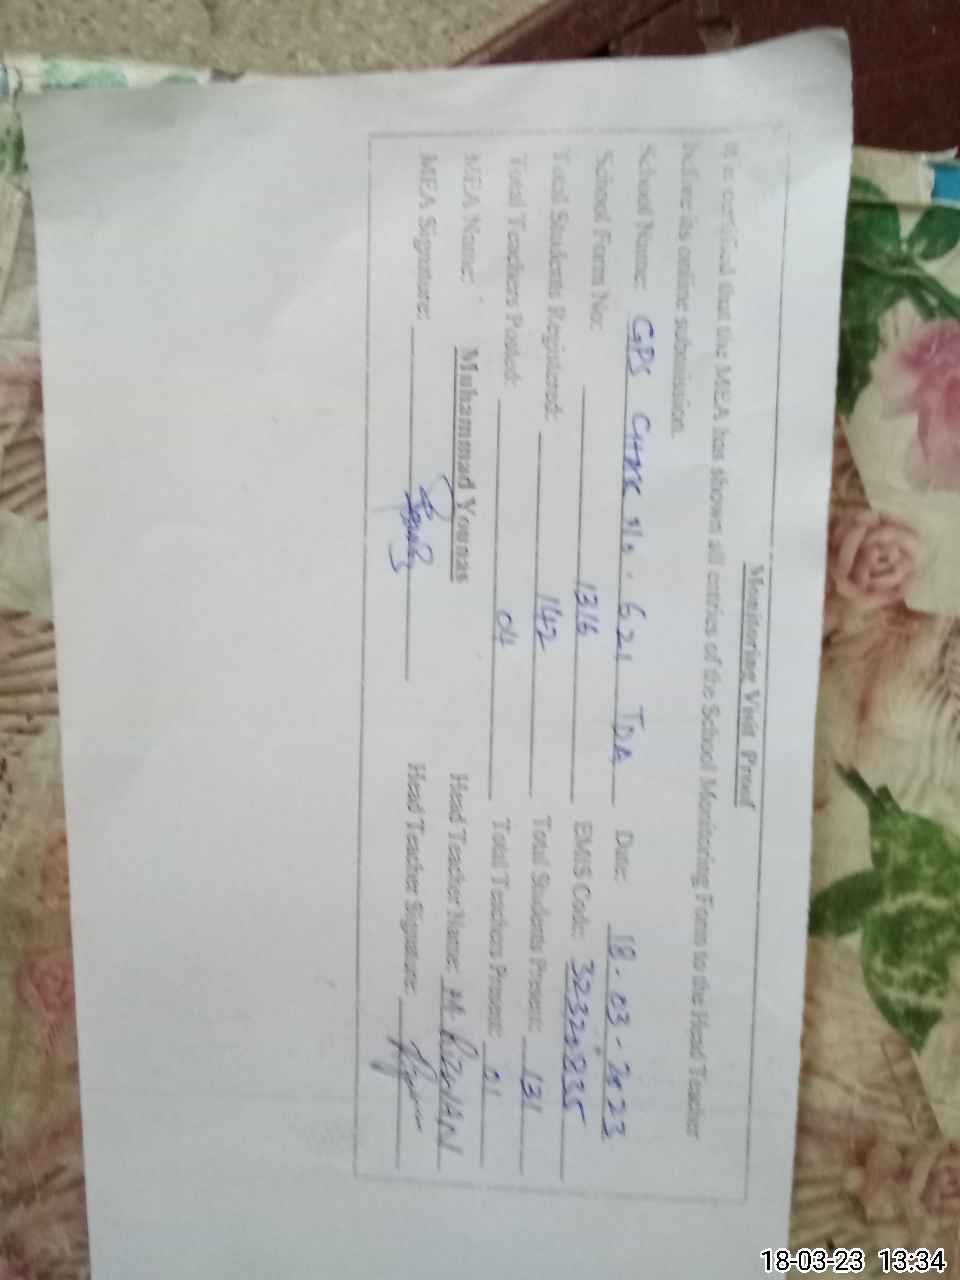 Monitoring Visit Proof
It is certified that the MEA has shown all entries of the School Monitoring Form to the Head Teacher
before its online submission.
School Name: GPS Chak No. 621 TDA Date: 18-03-2023
School Form No: 1316 EMIS Code: 32320835
Total Students Registered: 142 Total Students Present: 131
Total Teachers Posted: 04 Total Teachers Present: 01
MEA Name: Muhammad Younas Head Teacher Name: M. RIZWAN
MEA Signature: Head Teacher Signature:
18-03-23 13:34